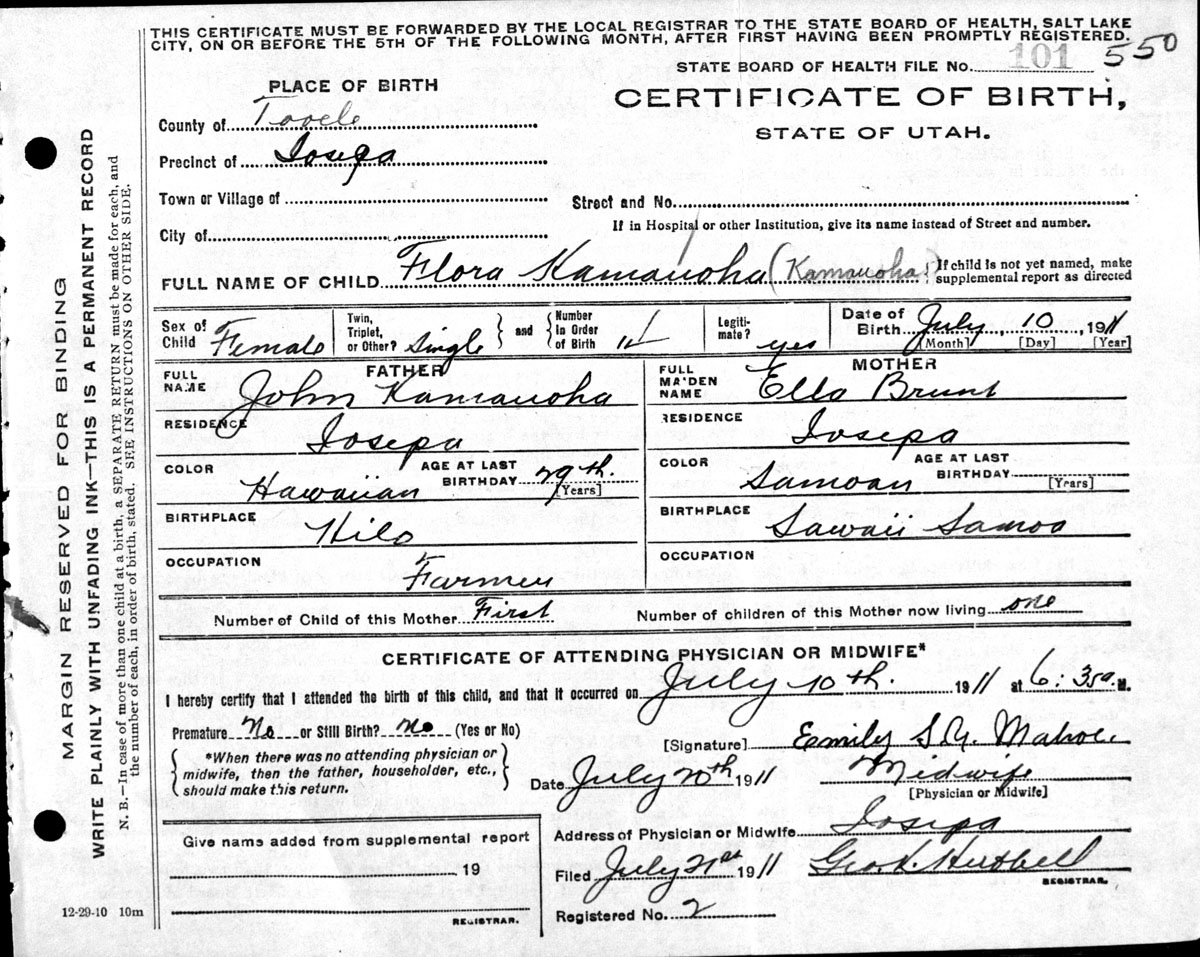 THIS CERTIFICATE MUST BE FORWARDED BY THE LOCAL REGISTRAR TO THE STATE BOARD OF HEALTH, SALT LAKE
CITY, ON OR BEFORE THE 5TH OF THE FOLLOWING MONTH, AFTER FIRST HAVING BEEN PROMPTLY REGISTERED.
STATE BOARD OF HEALTH FILE No. 101 550
PLACE OF BIRTH
CERTIFICATE OF BIRTH,
STATE OF UTAH.
County of Tooele
Precinct of Iosepa
Town or Village of
Street and No.
City of
If in Hospital or other Institution, give its name instead of Street and number.
FULL NAME OF CHILD Flora Kamauoha (Kamauoha) { If child is not yet named, make
supplemental report as directed
Sex of Child Female
Twin, Triplet, or Other? Single } and { Number in Order of Birth 1
Legitimate? yes
Date of Birth July 10, 1911
[Month] [Day] [Year]
FATHER
FULL NAME John Kamauoha
RESIDENCE Iosepa
COLOR Hawaiian
AGE AT LAST BIRTHDAY 29th.
[Years]
BIRTHPLACE Hilo
OCCUPATION Farmer
MOTHER
FULL MAIDEN NAME Ella Brunt
RESIDENCE Iosepa
COLOR Samoan
AGE AT LAST BIRTHDAY
[Years]
BIRTHPLACE Sawaii Samoa
OCCUPATION
Number of Child of this Mother First
Number of children of this Mother now living one
CERTIFICATE OF ATTENDING PHYSICIAN OR MIDWIFE*
I hereby certify that I attended the birth of this child, and that it occurred on July 10th. 1911 at 6:35 a. M.
Premature No or Still Birth? No (Yes or No)
*When there was no attending physician or
midwife, then the father, householder, etc.,
should make this return.
[Signature] Emily S.
Date July 20th 1911
Midwife
[Physician or Midwife]
Address of Physician or Midwife Iosepa
Filed July 21st 1911 Geo. K. Hubbell
REGISTRAR.
Registered No. 2
Give name added from supplemental report
19
REGISTRAR.
12-29-10 10m
MARGIN RESERVED FOR BINDING
WRITE PLAINLY WITH UNFADING INK—THIS IS A PERMANENT RECORD
N. B.—In case of more than one child at a birth, a SEPARATE RETURN must be made for each, and
the number of each, in order of birth, stated. SEE INSTRUCTIONS ON OTHER SIDE.